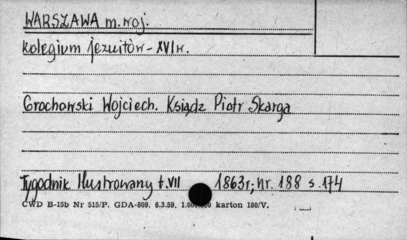 WARSZAWA m. woj.
kolegium jezuitów - XVI w.
Grochowski Wojciech. Ksiądz Piotr Skarga
Tygodnik Ilustrowany t. VII 1863r; nr. 188 s. 174
CWD B-15b Nr 515/P. GDA-809. 6.3.59. karton 180/V.